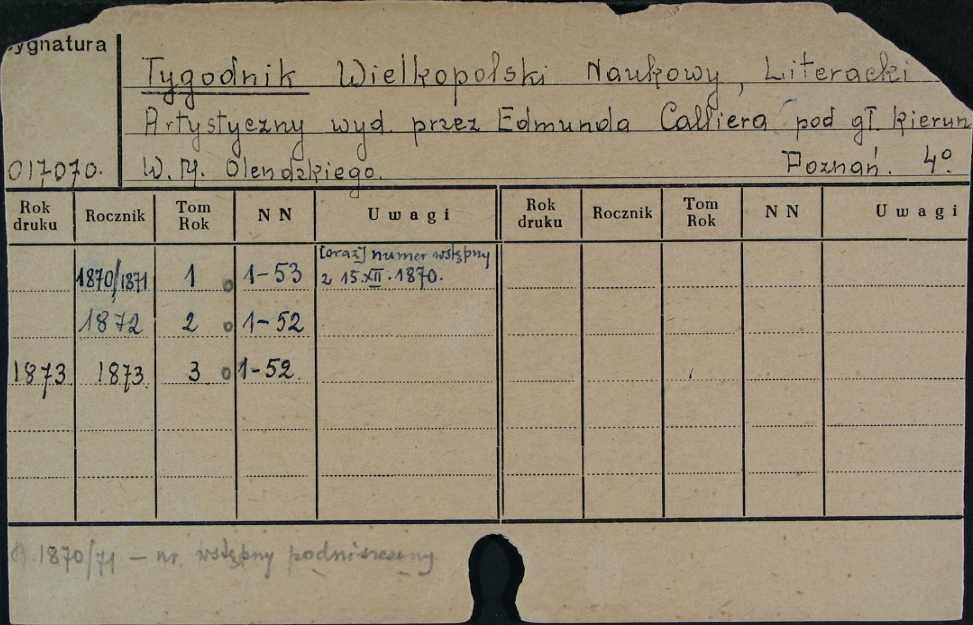 ygnatura
Tygodnik Wielkopolski Naukowy, Literacki
Artystyczny wyd. przez Edmunda Calliera pod gł. kierun
017070. W. M. Olendzkiego. Poznań. 4º.
Rok druku Rocznik Tom Rok NN Uwagi Rok druku Rocznik Tom Rok NN Uwagi
[oraz] numer wstępny
1870/1871 1 1-53 z 15.XII.1870.
1872 2 1-52
1873 1873 3 1-52
1870/71 — nr. wstępny podniszczony